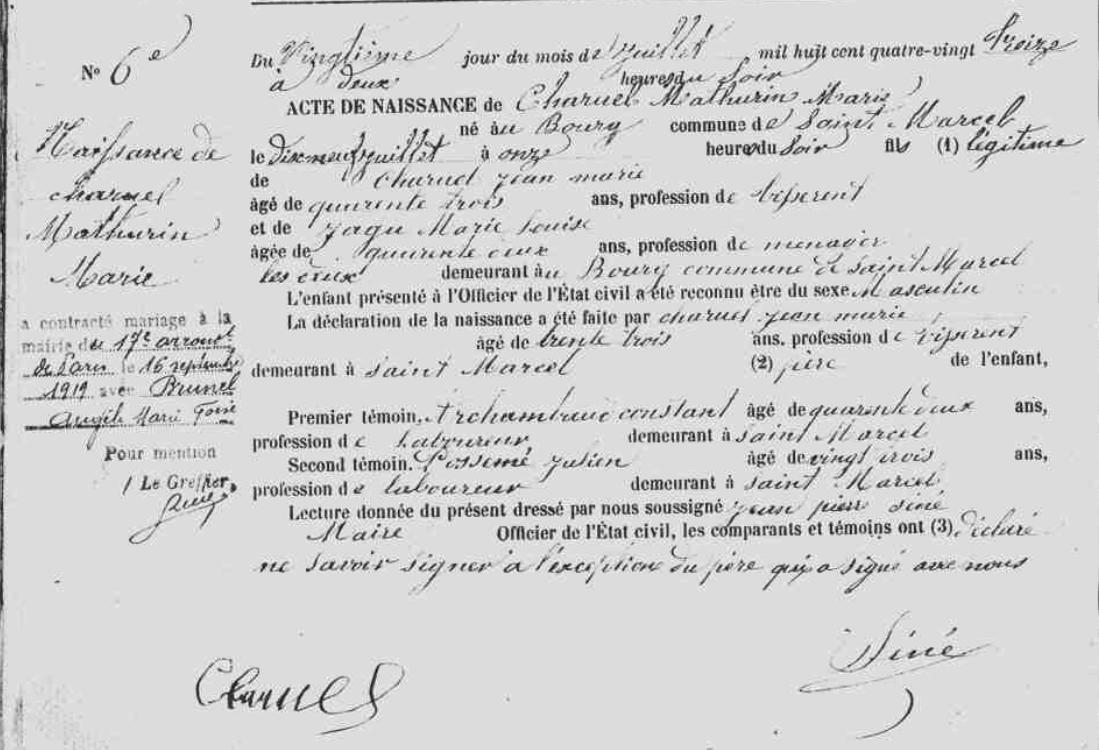 N° 6e
Naissance de
charuel
Mathurin
Marie
a contracté mariage à la
mairie de 17e arrondt
de Paris le 16 septembre
1919 avec Brunel
Angèle Marie
Pour mention
Le Greffier,
Du Vingtième jour du mois de juillet mil huit cent quatre-vingt treize
à deux heures du Soir
ACTE DE NAISSANCE de Charuel Mathurin Marie
né au Bourg commune de Saint Marcel
le dix neuf juillet à onze heures du Soir fils (1) légitime
de Charuel jean marie
âgé de quarente trois ans, profession de
et de Marie Louise
âgée de quarente deux ans, profession de menager
les deux demeurant au Bourg commune de Saint Marcel
L'enfant présenté à l'Officier de l'État civil a été reconnu être du sexe Masculin
La déclaration de la naissance a été faite par charuel jean marie
âgé de trente trois ans, profession de
demeurant à saint Marcel (2) père de l'enfant,
Premier témoin, Archambaud constant âgé de quarente deux ans,
profession de laboureur demeurant à saint Marcel
Second témoin, julien âgé de vingt trois ans,
profession de laboureur demeurant à saint Marcel
Lecture donnée du présent dressé par nous soussigné jean pierre siné
Maire Officier de l'État civil, les comparants et témoins ont (3) déclaré
ne savoir signer à l'exception du père qui a signé avec nous
Siné
Charuel